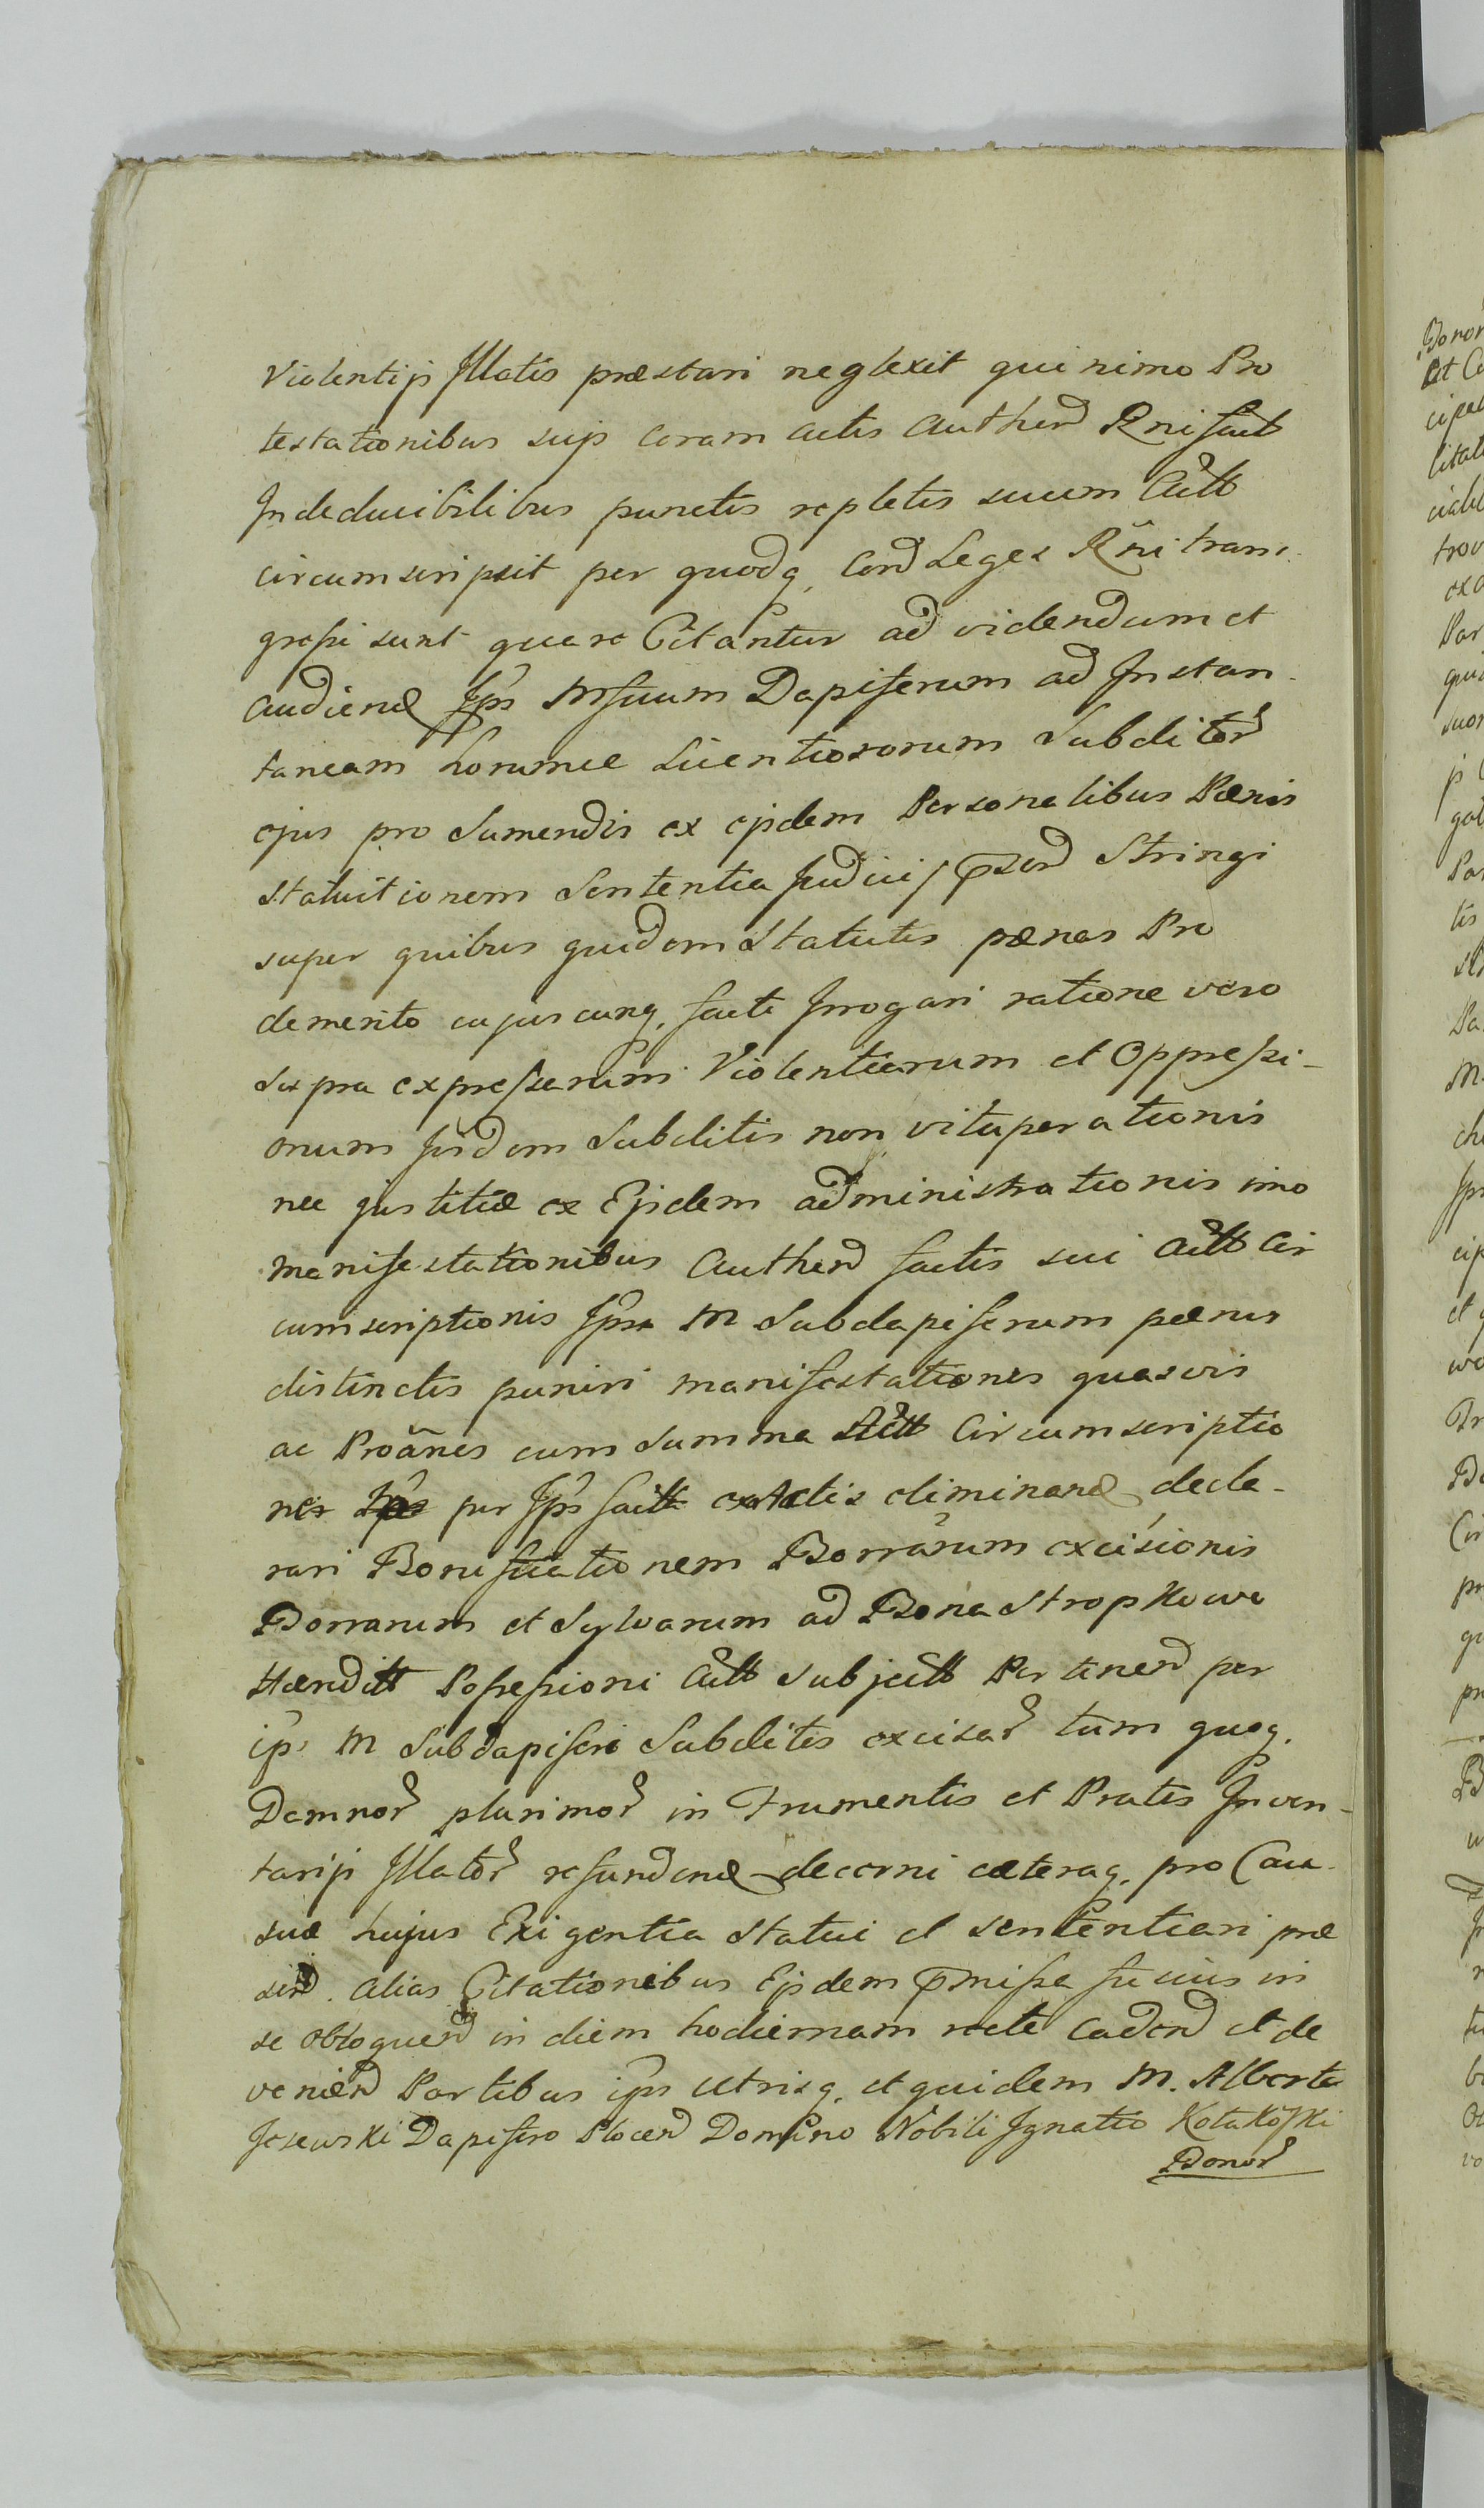 Violentijs Jllatis præstari neglexit quinimo Pro
testationibus sujs coram actis Authen Rni fact
Jndeducibilibus punctis repletis suum Actt
circumscripsit per quodq, Cord Leges Rñi trans-
greſsi sunt quare Citantur ad videndum et
audiend Jps Msuum Dapiferum ad Jnstan-
taneam horumce Licentiosorum Subditor
ejus pro Sumendis ex ejsdem Personalibus Pænis
statuitionem Sententia Judicij pꝛsend Stringi
super quibus quidem Statutis pænas Pro
demerito cujuscunq, facti Jrrogari ratione vero
Supra expreſsarum Violentiarum et Oppreſsi-
onum Jisdem Subditis non vituperationis
nec justitiæ ex Ejsdem administrationis imo
manifestationibus Authen factis sui Actt Cir
cumscriptionis Jpsa M Subdapiferum pænis
distinctis puniri manifestationes quasvis
ac Proãnes cum Summa Actt Circumscriptio
nes per Jps factt ex Actis eliminand decla-
rari Bonificationem Borrarum excisionis
Borrarum et Sylvarum ad Bona Stropkowo
Hænditt Poſseſsioni Actt Subjectt Pertinen per
ips M Subdapiferi Subditis excisar tum quoq,
Damnor plurimor in Frumentis et Pratis Jnven-
tarijs Jllator refundend decerni cæteraq, pro Cau-
suæ hujus Exigentia Statui et sententiari præ
sen. Alias Citationibus Ejsdem pmiſsa fusius in
se obloquen in diem hodiernam rite caden et de
venien Partibus ips utrisq, et quidem M. Alberto
Jezewski Dapifero Plocen Domino Nobili Jgnatio Kotakoſki
Bonor